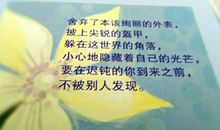 舍弃了本该绚丽的外表，
披上尖锐的盔甲，
躲在这世界的角落，
小心地隐藏着自己的光芒，
要在迟钝的你到来之前，
不被别人发现。